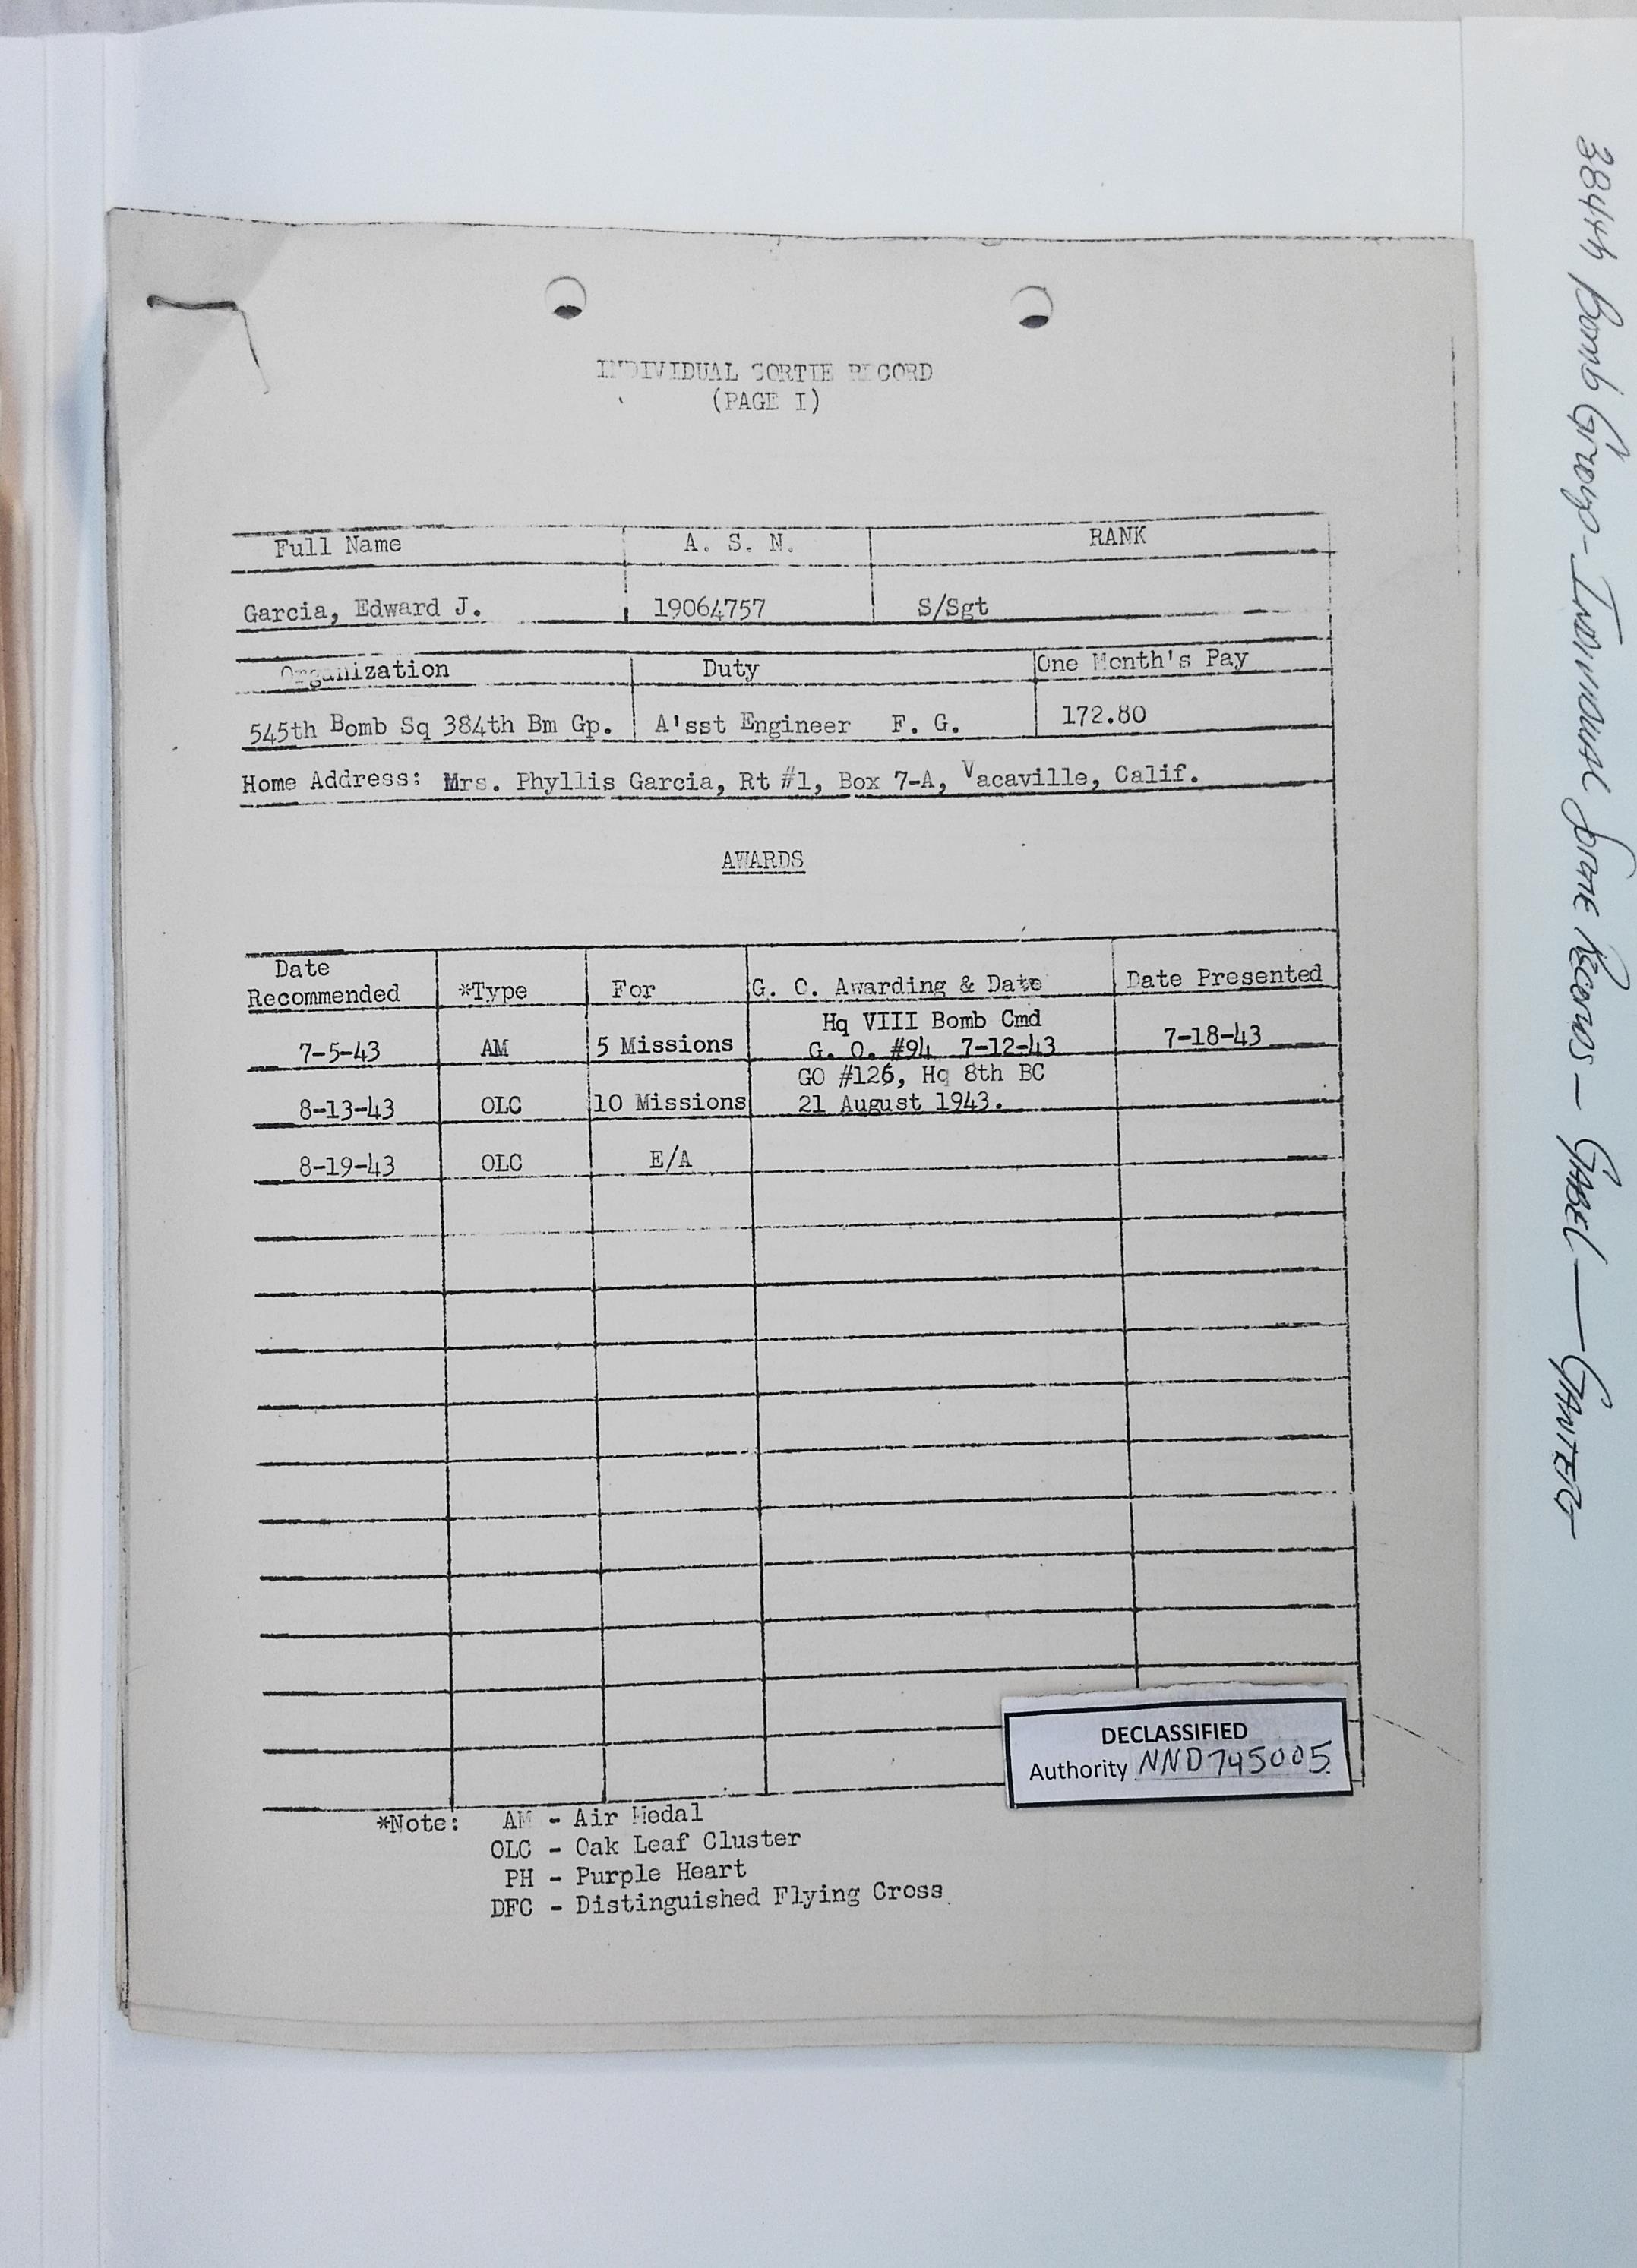 INDIVIDUAL SORTIE RECORD
(PAGE I)
Full Name A. S. N. RANK
Garcia, Edward J. 19064757 S/Sgt
Organization Duty One Month's Pay
545th Bomb Sq 384th Bm Gp. A'sst Engineer F. G. 172.80
Home Address: Mrs. Phyllis Garcia, Rt #1, Box 7-A, Vacaville, Calif.
AWARDS
Date
Recommended *Type For G. O. Awarding & Date Date Presented
Hq VIII Bomb Cmd
7-5-43 AM 5 Missions G. O. #94 7-12-43 7-18-43
GO #126, Hq 8th BC
8-13-43 OLC 10 Missions 21 August 1943.
8-19-43 OLC E/A
DECLASSIFIED
Authority NND745005
*Note: AM - Air Medal
OLC - Oak Leaf Cluster
PH - Purple Heart
DFC - Distinguished Flying Cross
384th Bomb Group - Individual Sortie Records - GABEL -